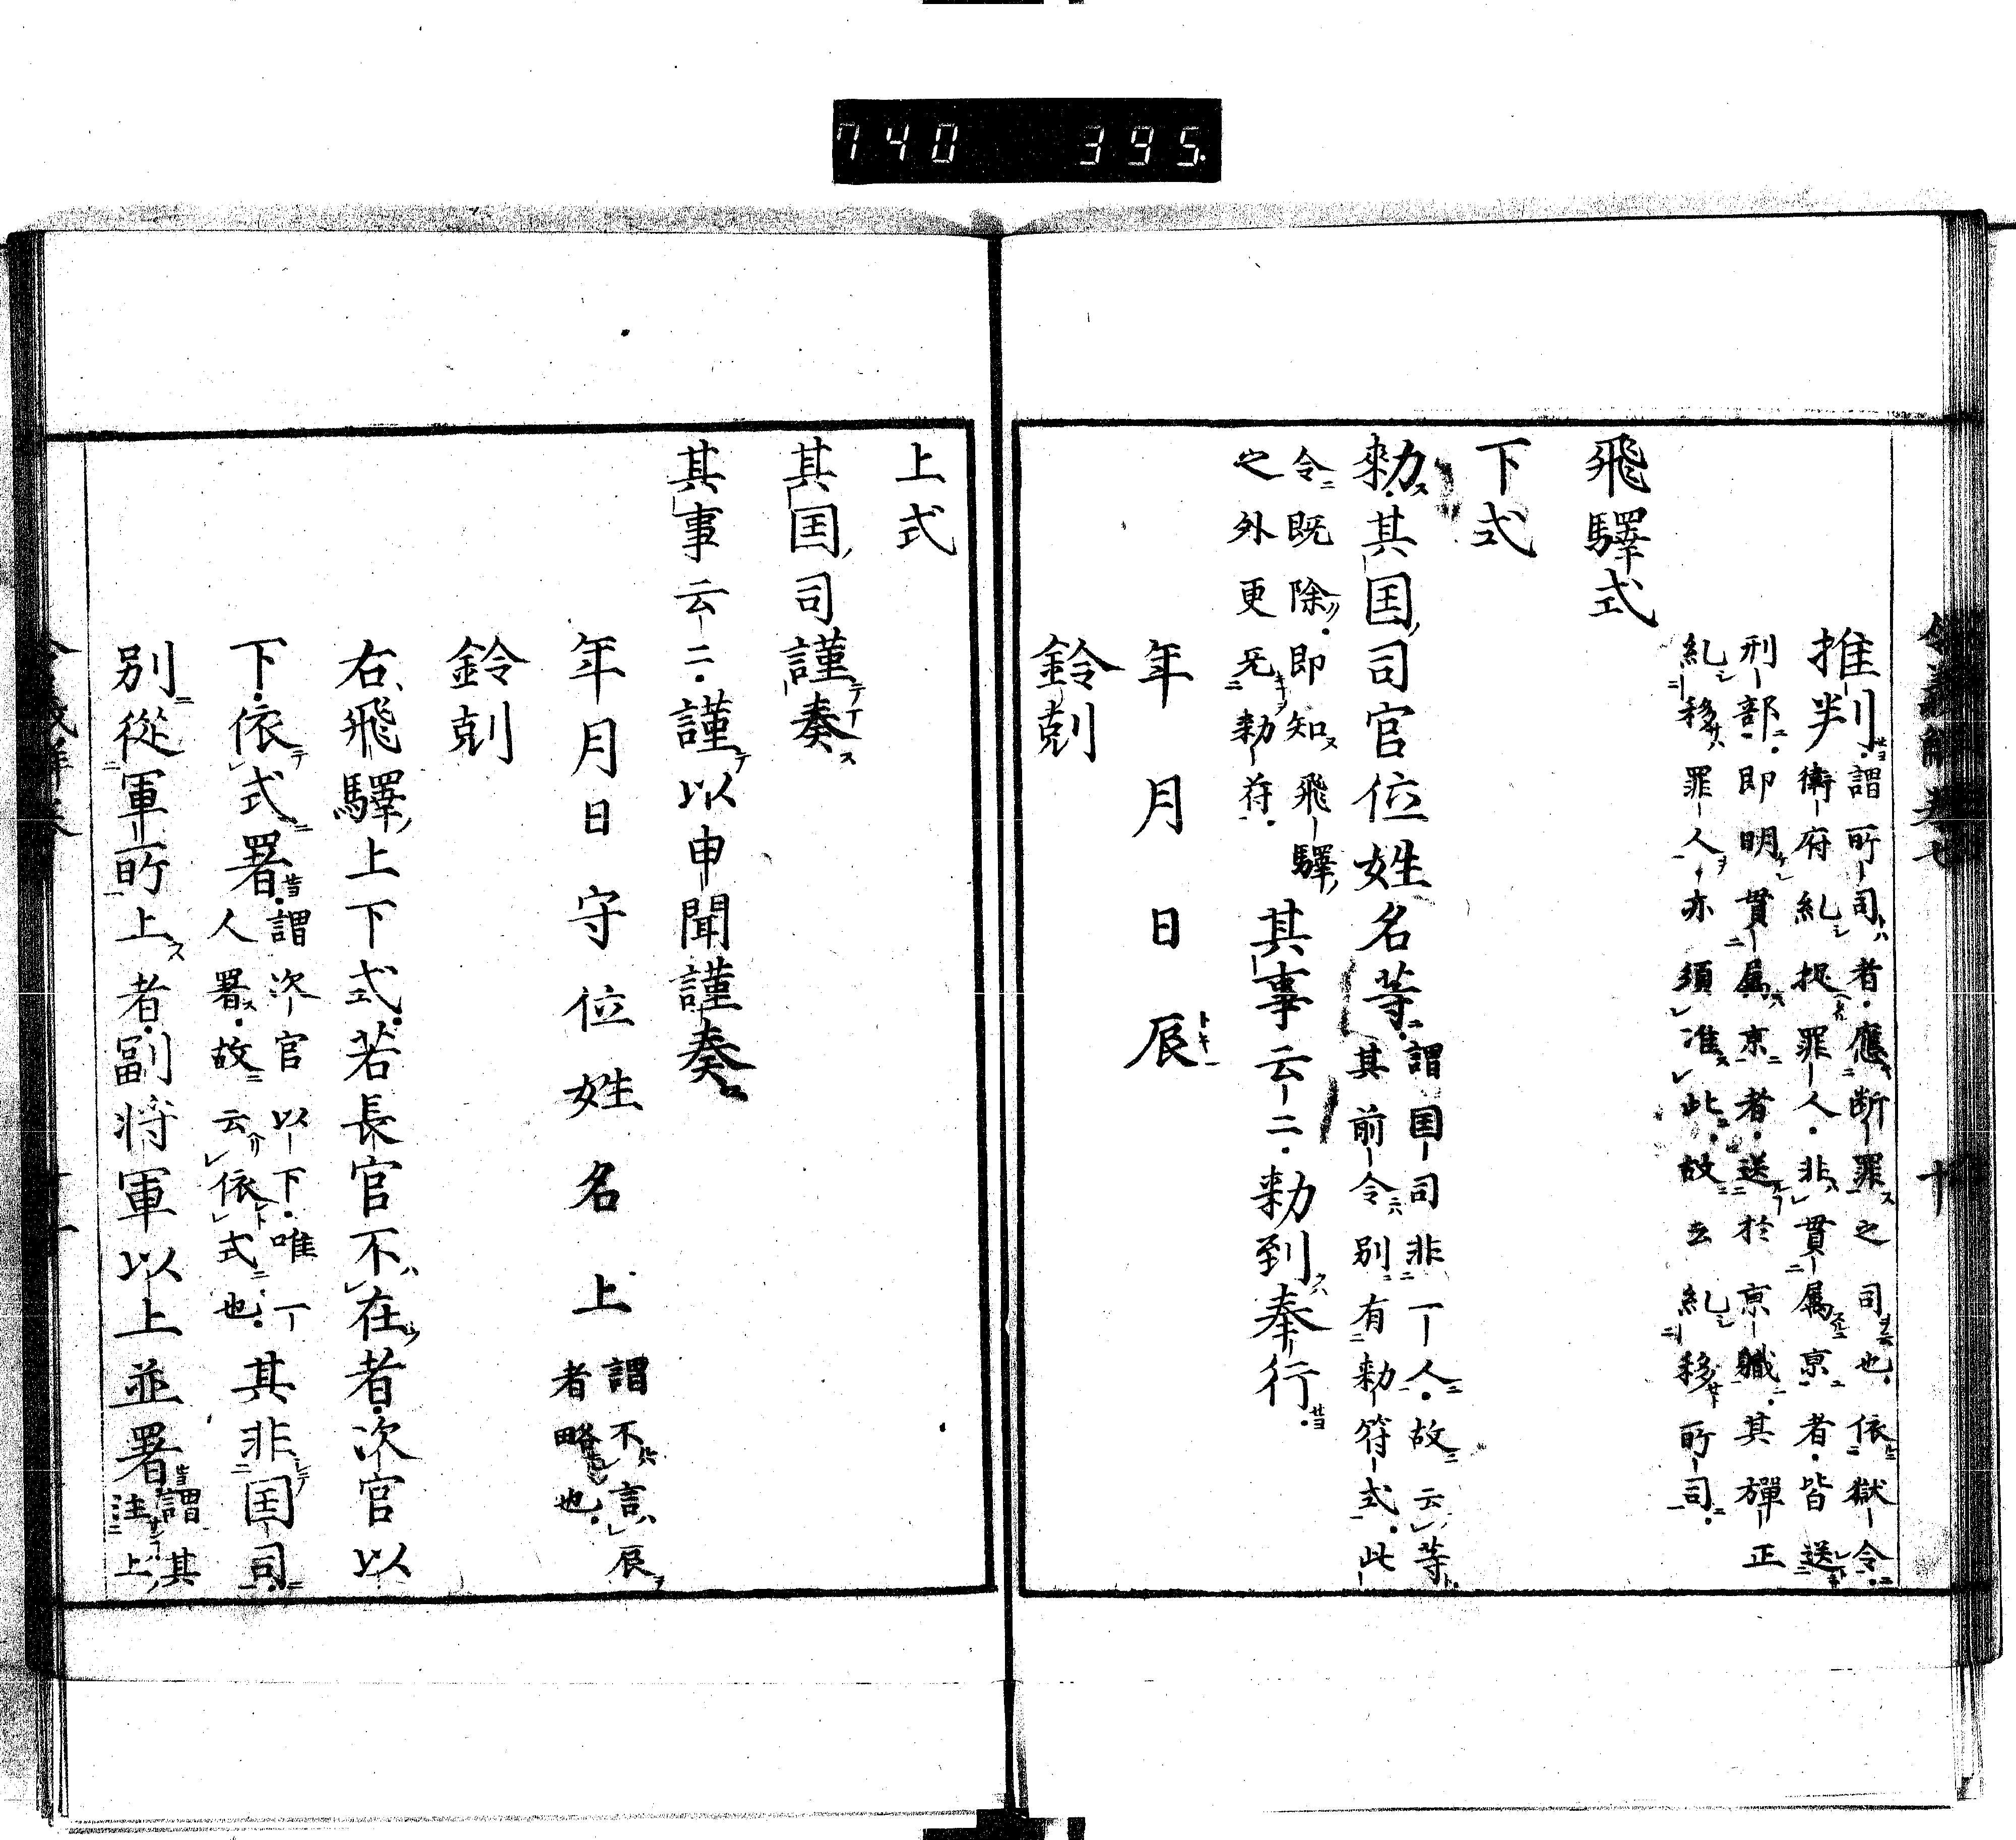 740 395
推判謂所司者應断罪之司也依獄令
衛府糺捉罪人非貫属京者皆送
刑部即明貫属京者送於京職其彈正
糺移罪人亦須准此故云糺移所司
飛驛式
下式
勅其国司官位姓名等謂国司非一人故云等
其前令別有勅符式此
令既除即知飛驛
之外更无勅符其事云々勅到奉行
年月日辰
鈴剋
上式
其国司謹奏
其事云々謹以申聞謹奏
年月日守位姓名上謂不言辰
者略也
鈴剋
右飛驛上下式若長官不在者次官以
下依式署謂次官以下唯一
人署故云依式也其非国司
別從軍所上者副将軍以上並署謂其
注上